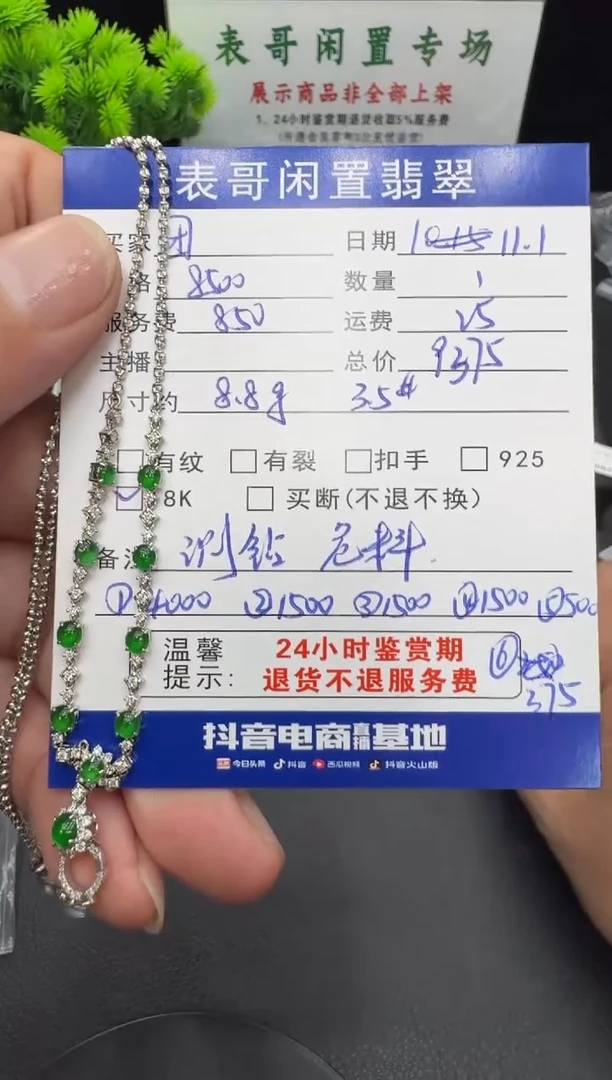 表哥闲置专场
展示商品非全部上架
1、24小时鉴赏期退货收取5%服务费
表哥闲置翡翠
买家 团 日期 11.1
格 8500 数量 1
服务费 850 运费 25
主播 总价 9375
尺寸约 8.8g 35#
有纹 有裂 扣手 925
8K 买断(不退不换)
备注 测钻 危料
①4000 ②1500 ③1500 ④1500 ⑤500
温馨提示: 24小时鉴赏期
退货不退服务费
⑥ 375
抖音电商直播基地
今日头条 抖音 西瓜视频 抖音火山版